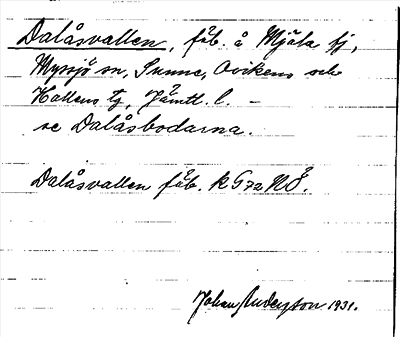 Dalåsvallen, fäb. å Mjäla fj,
Myssjö sn, Sunne, Ovikens och
Hallens tg, Jämtl. l. –
se Dalåsbodarna.
Dalåsvallen fäb. k G72 NÖ.
Johan Anderson 1931.